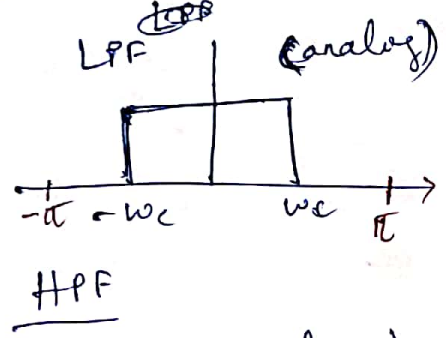 LPF (analog)
-π -wc wc π
HPF